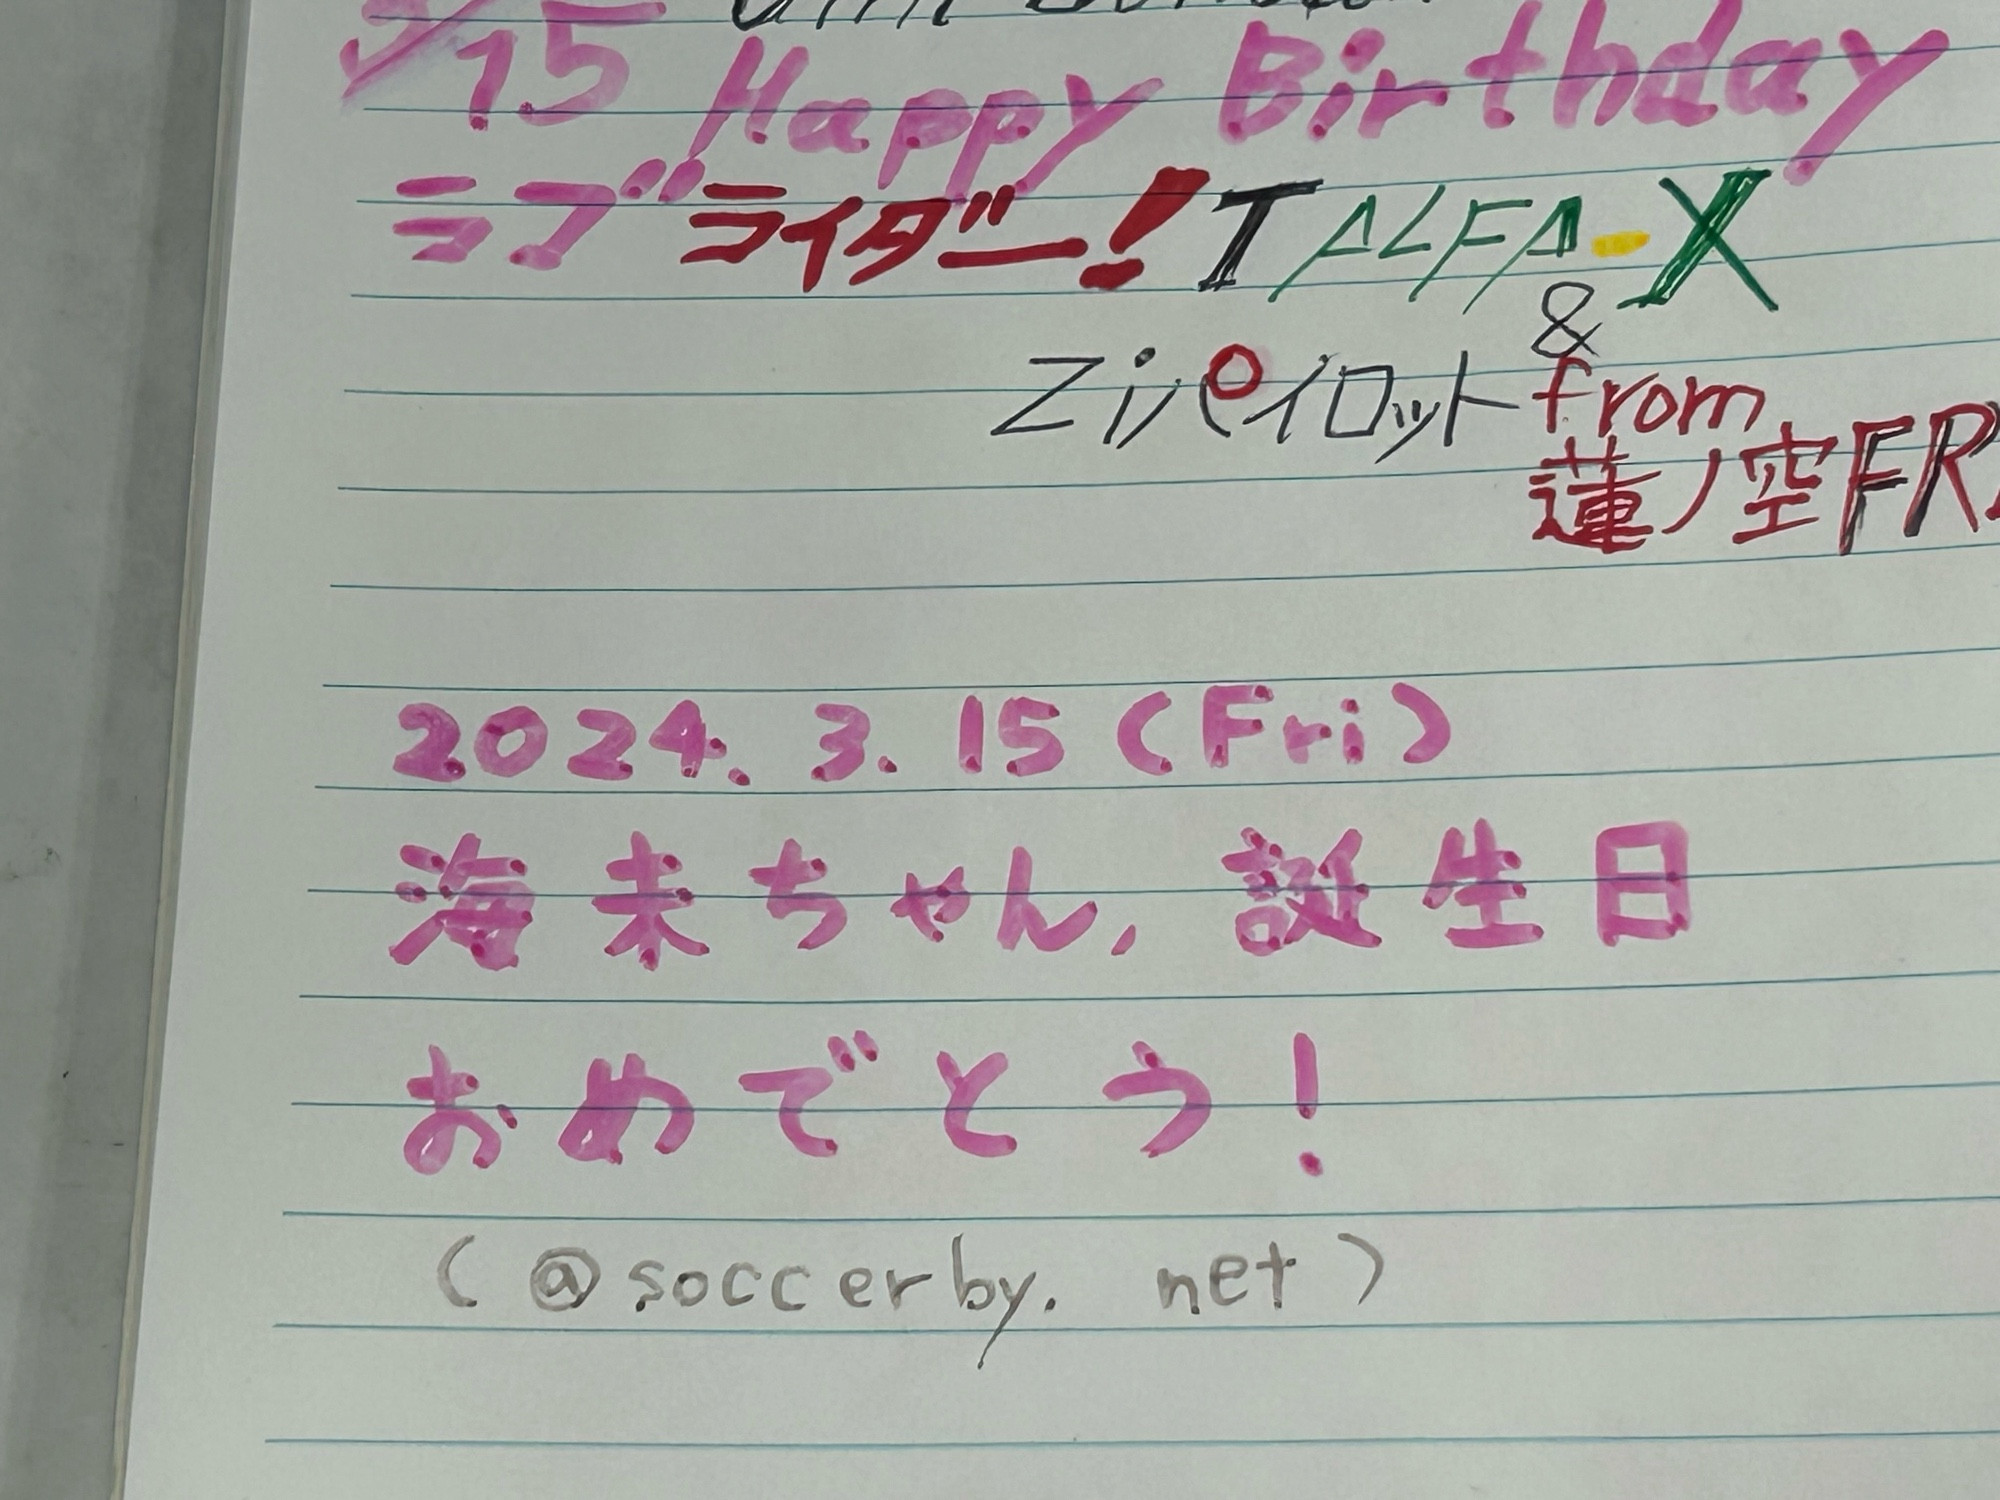 3/15 Happy Birthday
ラブライダー!I ALFA-X
&
Ziパイロット from
蓮ノ空FR
2024. 3. 15 (Fri)
海未ちゃん, 誕生日
おめでとう!
(@soccerby. net)